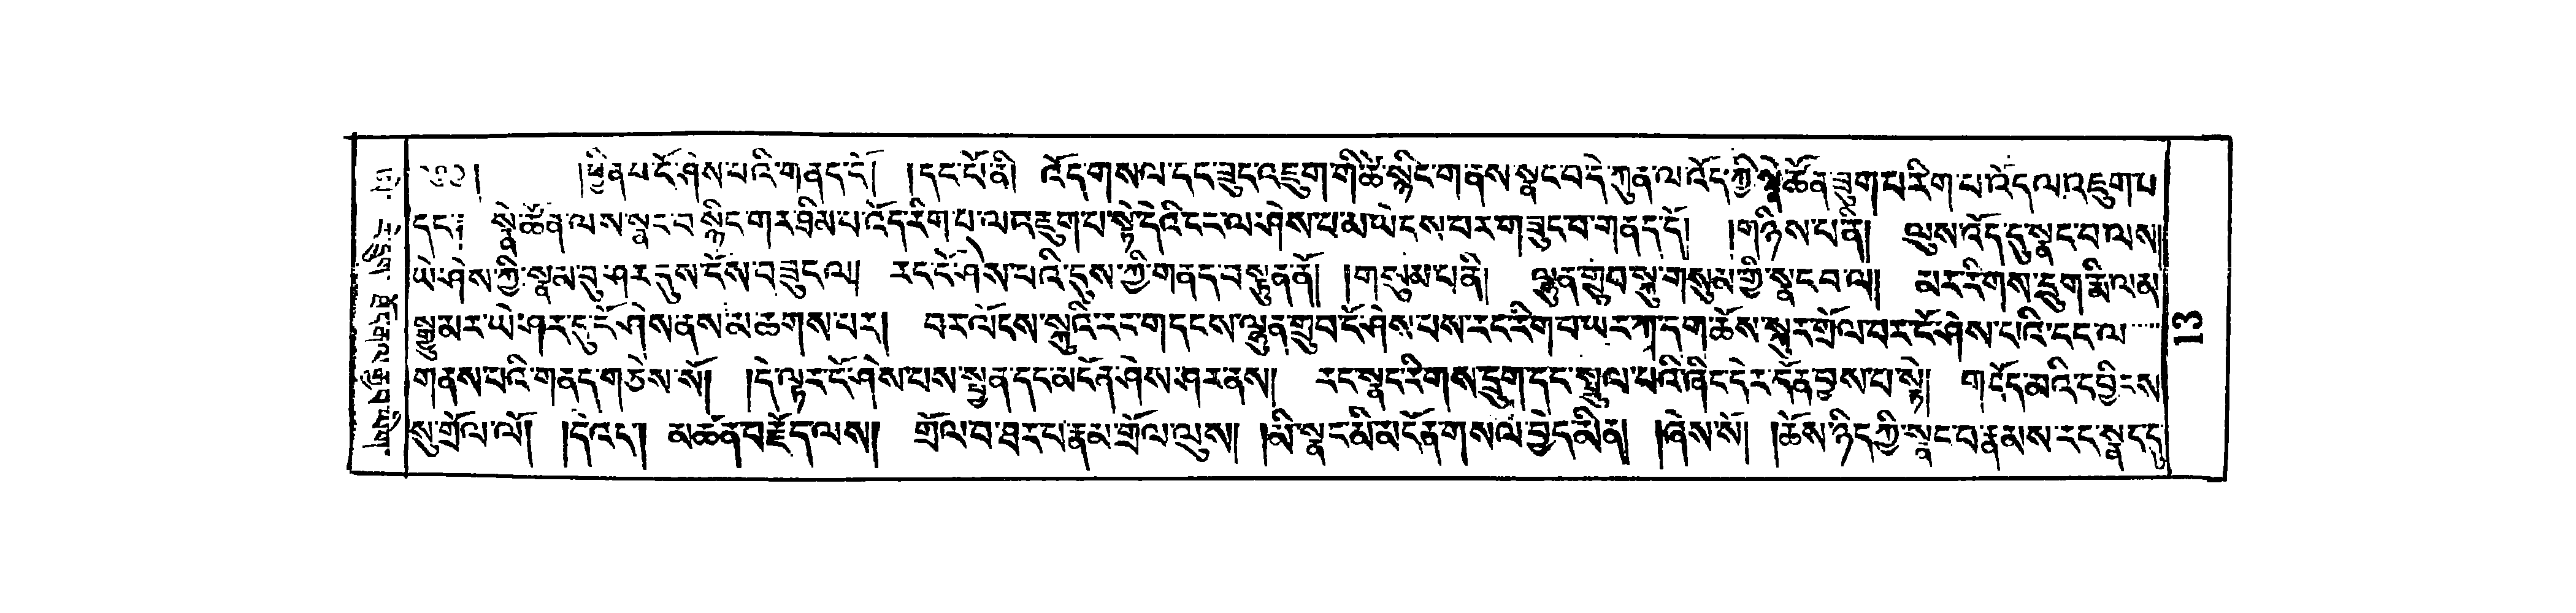 ༄༅། །ཕྱིན་པ་ངོ་ཤེས་པའི་གནད་དེ། །དང་པོ་ནི། འོད་གསལ་དང་ཟུང་འཇུག་གི་ཚེ་སྙིང་གནས་སྣང་བ་དེ་ཀུན་ལ་འོད་ཀྱི་སྣེ་ཚོན་ཟུག་པ་རིག་པ་འོད་ལ་འཇུག་པ
དང་༔ སྣེ་ཚོན་ལས་སྣང་བ་སྙིང་གར་ཐིམ་པ་འོད་རིག་པ་ལ་འཇུག་པ་སྟེ་དེའི་ངང་ལ་ཤེས་པ་མ་ཡེངས་པར་གཟུང་བ་གནད་དོ། །གཉིས་པ་ནི། ལུས་འོད་དུ་སྣང་བ་ལས།
ཡེ་ཤེས་ཀྱི་སྣམ་བུ་ཤར་དུས་ངོས་བཟུང་ལ། རང་ངོ་ཤེས་པའི་དུས་ཀྱི་གནད་བསྟུན་ནོ། །གསུམ་པ་ནི། ལྷུན་གྲུབ་སྐུ་གསུམ་གྱི་སྣང་བ་ལ། མར་རིགས་དྲུག་རྨི་ལམ
སྒྱུ་མར་ཡེ་ཤར་དུ་ངོ་ཤེས་ནས་མ་ཆགས་པར། བར་ལོངས་སྐུའི་རང་གདངས་ལྷུན་གྲུབ་ངོ་ཤེས་པས་རང་རིག་བ་ཡར་ཀ་དག་ཆོས་སྐུར་གྲོལ་བར་ངོ་ཤེས་པའི་ངང་ལ
གནས་པའི་གནད་གཅེས་སོ། །དེ་ལྟར་ངོ་ཤེས་པས་སྤྱན་དང་མངོན་ཤེས་ཤར་ནས། རང་སྣང་རིགས་དྲུག་དང་སྤྲུལ་པའི་ཞིང་དེར་དོན་བྱས་པ་སྟེ། གདོད་མའི་དབྱིངས
སུ་གྲོལ་ལོ། །དེ་འང་། མཚན་བརྗོད་ལས། གྲོལ་བ་ཐར་པ་རྣམ་གྲོལ་ལུས། །མི་སྣང་མི་མངོན་གསལ་བྱེད་མིན། །ཞེས་སོ། །ཆོས་ཉིད་ཀྱི་སྣང་བ་རྣམས་རང་སྣང་དུ